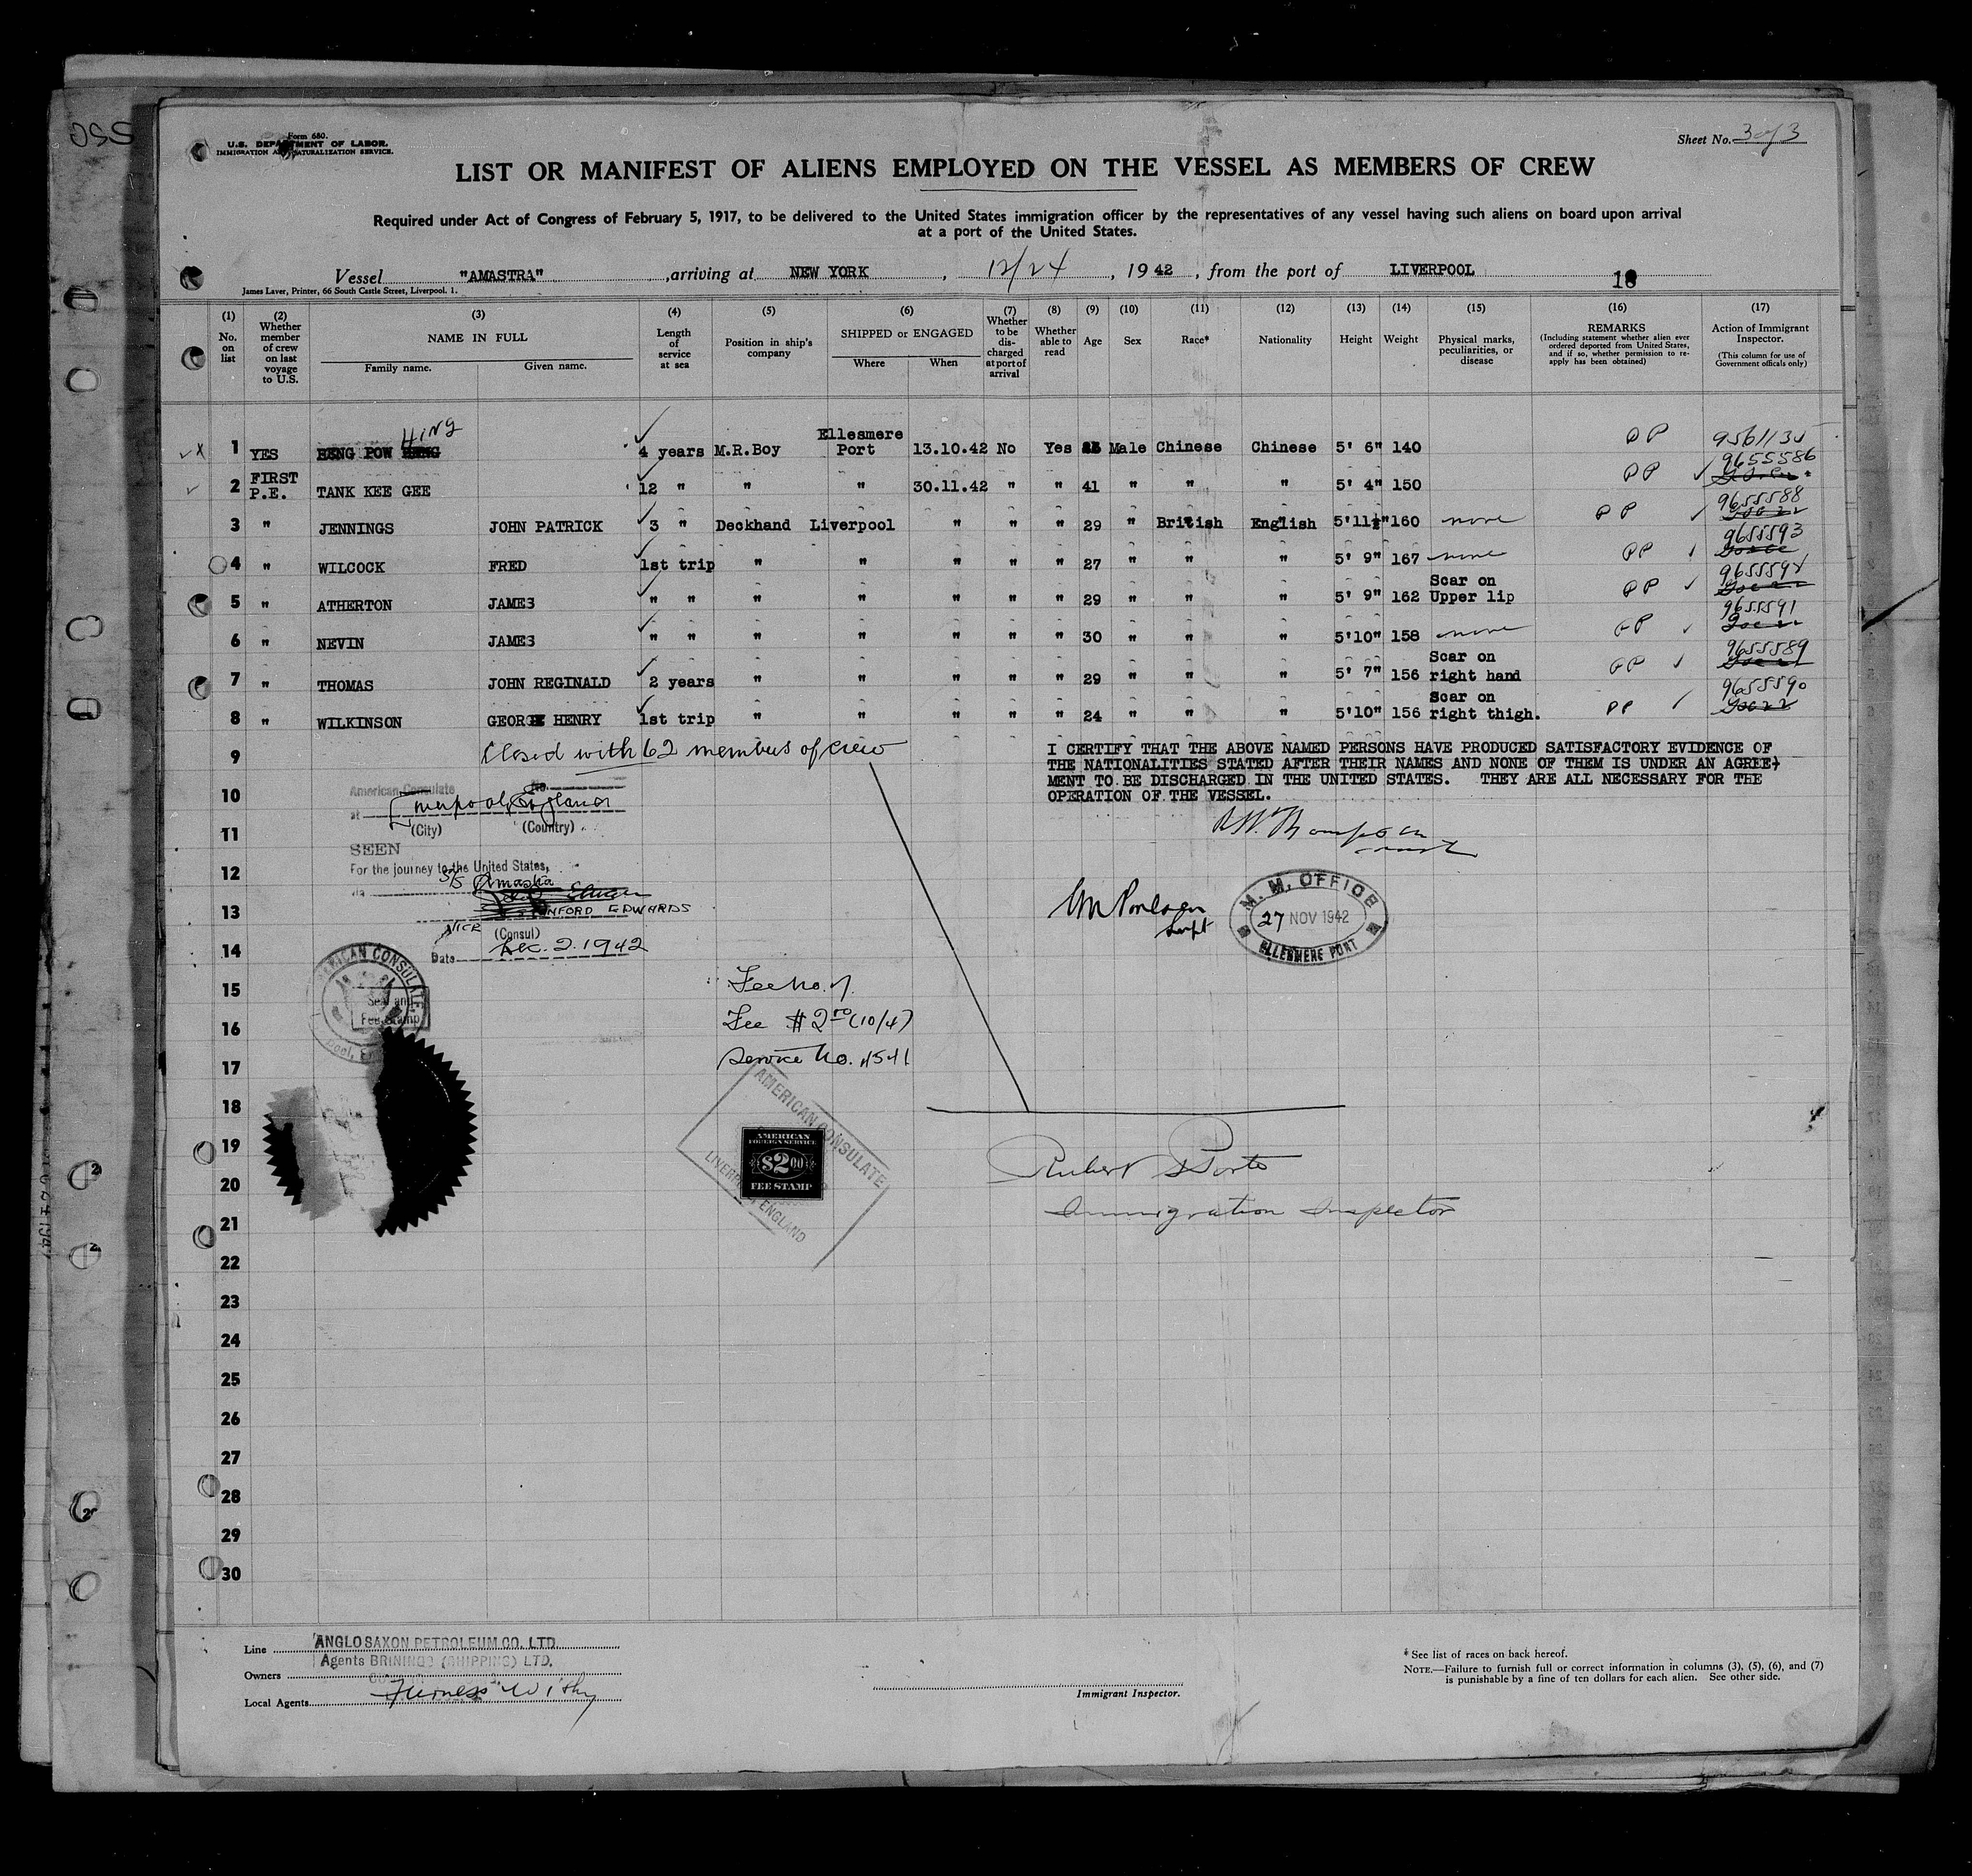 Form 680.
U.S. DEPARTMENT OF LABOR.
IMMIGRATION AND NATURALIZATION SERVICE.
Sheet No. 3 of 3
LIST OR MANIFEST OF ALIENS EMPLOYED ON THE VESSEL AS MEMBERS OF CREW
Required under Act of Congress of February 5, 1917, to be delivered to the United States immigration officer by the representatives of any vessel having such aliens on board upon arrival
at a port of the United States.
Vessel "AMASTRA", arriving at NEW YORK, 12/24, 1942, from the port of LIVERPOOL
James Laver, Printer, 66 South Castle Street, Liverpool. 1.
18
(1) No. on list (2) Whether member of crew on last voyage to U.S. (3) NAME IN FULL Family name. Given name. (4) Length of service at sea (5) Position in ship's company (6) SHIPPED or ENGAGED Where When (7) Whether to be discharged at port of arrival (8) Whether able to read (9) Age (10) Sex (11) Race* (12) Nationality (13) Height (14) Weight (15) Physical marks, peculiarities, or disease (16) REMARKS (Including statement whether alien ever ordered deported from United States, and if so, whether permission to re-apply has been obtained) (17) Action of Immigrant Inspector. (This column for use of Government officials only)
1 YES POW HING 4 years M.R.Boy Ellesmere Port 13.10.42 No Yes Male Chinese Chinese 5' 6" 140 PP 9561135
2 FIRST P.E. TANK KEE GEE 12 " " " 30.11.42 " " 41 " " " 5' 4" 150 PP 9655586
3 " JENNINGS JOHN PATRICK 3 " Deckhand Liverpool " " " 29 " British English 5'11½" 160 none PP 9655588
4 " WILCOCK FRED 1st trip " " " " " 27 " " " 5' 9" 167 none PP 9655593
5 " ATHERTON JAMES " " " " " " " 29 " " " 5' 9" 162 Scar on Upper lip PP 9655594
6 " NEVIN JAMES " " " " " " " 30 " " " 5'10" 158 none PP 9655591
7 " THOMAS JOHN REGINALD 2 years " " " " " 29 " " " 5' 7" 156 Scar on right hand PP 9655589
8 " WILKINSON GEORGE HENRY 1st trip " " " " " 24 " " " 5'10" 156 Scar on right thigh. PP 9655590
Closed with 62 members of crew
I CERTIFY THAT THE ABOVE NAMED PERSONS HAVE PRODUCED SATISFACTORY EVIDENCE OF
THE NATIONALITIES STATED AFTER THEIR NAMES AND NONE OF THEM IS UNDER AN AGREE-
MENT TO BE DISCHARGED IN THE UNITED STATES. THEY ARE ALL NECESSARY FOR THE
OPERATION OF THE VESSEL.
9
10
11
12
13
14
15
16
17
18
19
20
21
22
23
24
25
26
27
28
29
30
American Consulate
No.
at Liverpool, England
(City) (Country)
SEEN
For the journey to the United States,
via S/S Amastra
EDWARDS
VICE (Consul)
Date Dec. 2. 1942
AMERICAN CONSULATE
Seal and
Fee Stamp
Supt
M. M. OFFICE
27 NOV 1942
ELLESMERE PORT
Fee No.
Fee $2.00 (10/4)
Service No. 4541
AMERICAN CONSULATE
LIVERPOOL ENGLAND
AMERICAN
FOREIGN SERVICE
$2.00
FEE STAMP
Immigration Inspector
Line ANGLO SAXON PETROLEUM CO. LTD.
Agents BRININGS (SHIPPING) LTD.
Owners
Local Agents Furness Withy
Immigrant Inspector.
* See list of races on back hereof.
NOTE.—Failure to furnish full or correct information in columns (3), (5), (6), and (7)
is punishable by a fine of ten dollars for each alien. See other side.